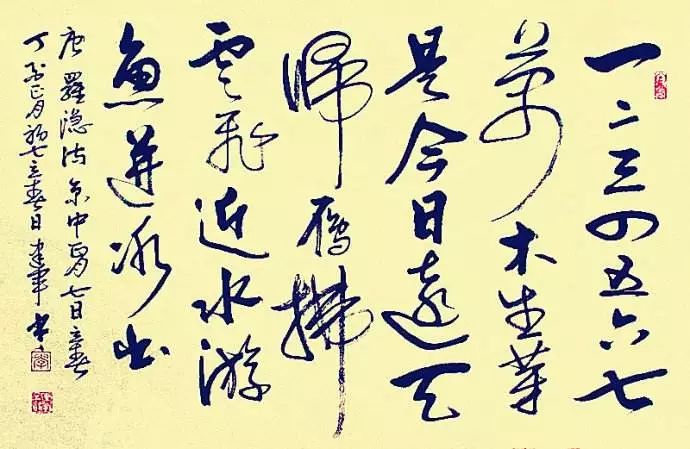 一二三四五六七
萬木生芽
是今日遠天
歸雁拂
雲飛近水游
魚迸冰出
唐羅隐诗京中正月七日立春
丁酉正月初七立春日書